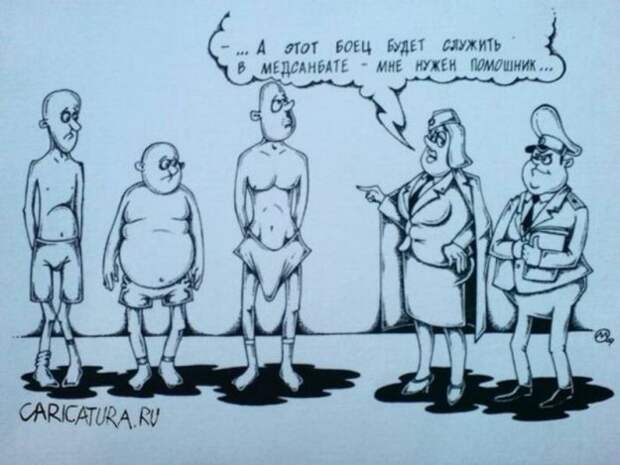 -... А ЭТОТ БОЕЦ БУДЕТ СЛУЖИТЬ
В МЕДСАНБАТЕ - МНЕ НУЖЕН ПОМОШНИК...
CARICATURA.RU